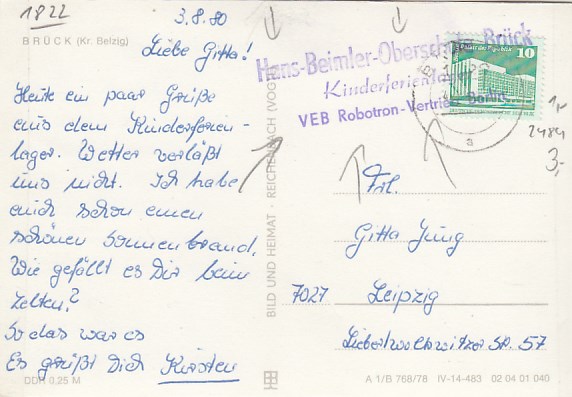 1822
3.8.80
BRÜCK (Kr. Belzig)
Liebe Gitta!
Heute ein paar Grüße
aus dem Kinderferien-
lager. Wetter verläßt
uns nicht. Ich habe
auch schon einen
schönen Sonnenbrand.
Wie gefällt es Dir beim
Zelten?
So das war es
Es grüßt Dich Kirsten
DDR 0,25 M
BILD UND HEIMAT · REICHENBACH (VOGTL)
Hans-Beimler-Oberschule Brück
Kinderferienlager
VEB Robotron-Vertrieb Berlin
10
a
2484
3,-
Frl.
Gitta Jung
7027 Leipzig
Liebertwolkwitzer Str. 57
A 1/B 768/78 IV-14-483 02 04 01 040